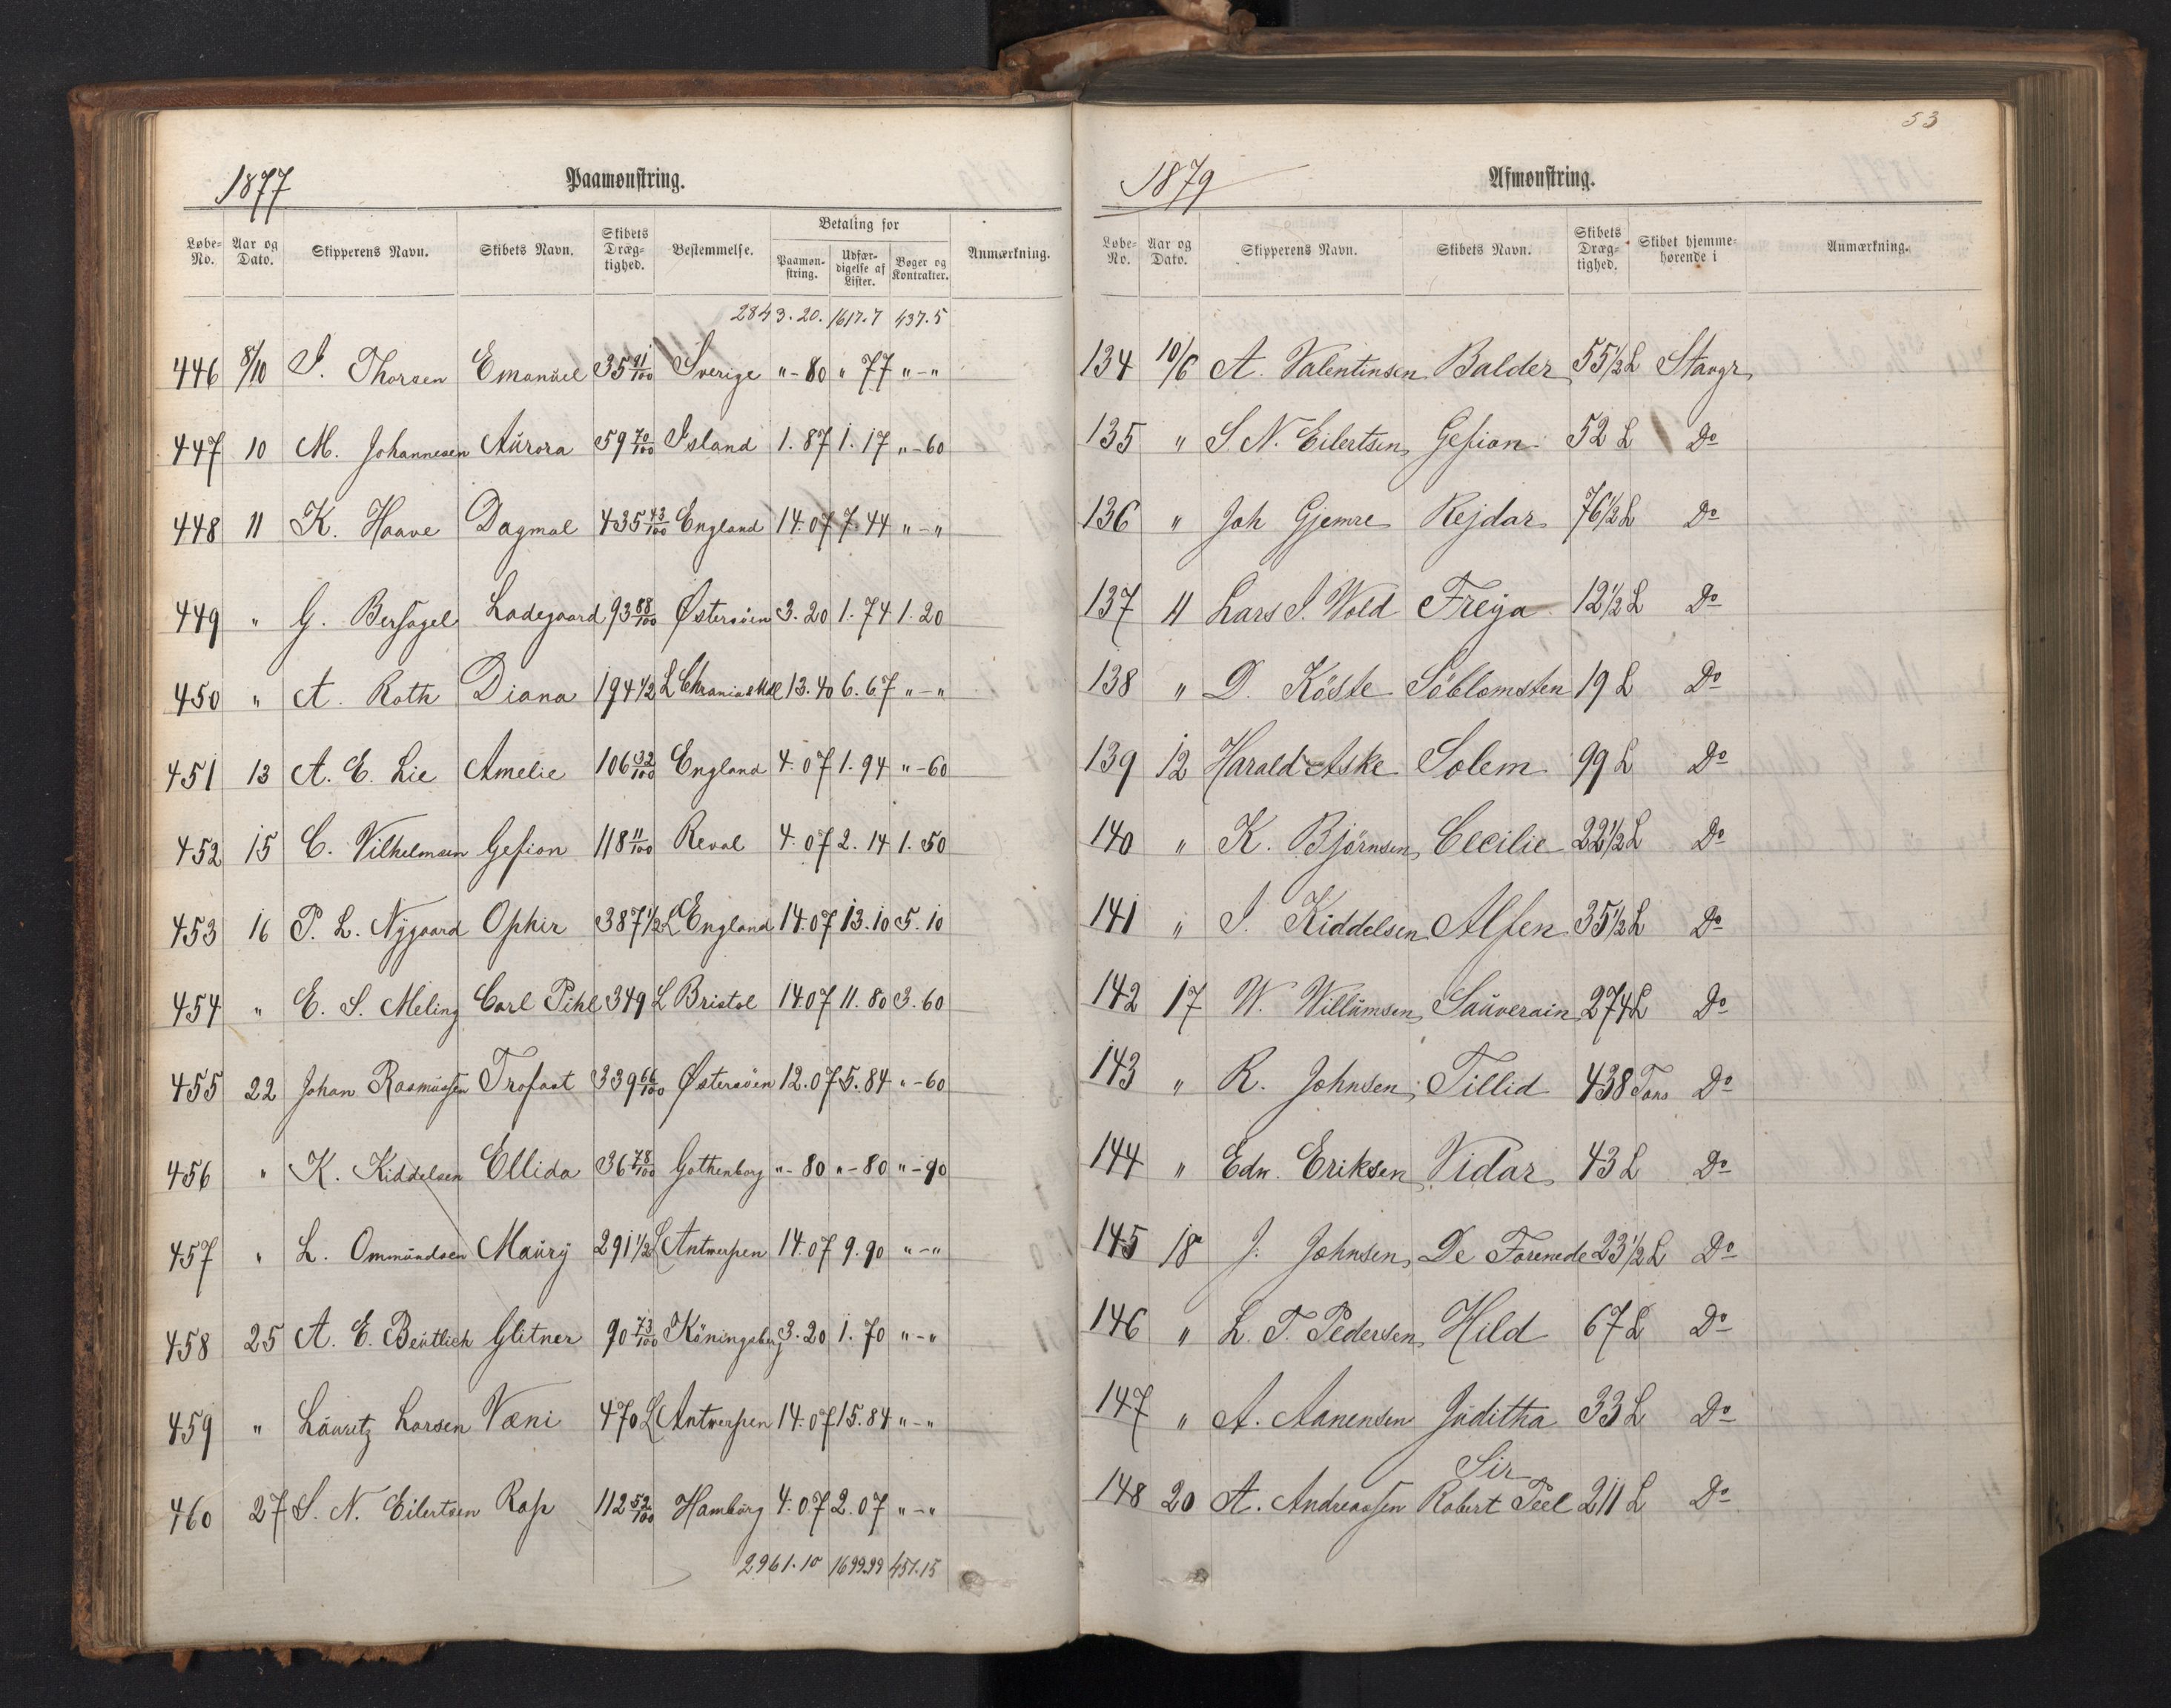 1877 Paamønstring.
Løbe-No. Aar og Dato. Skipperens Navn. Skibets Navn. Skibets Dræg-tighed. Bestemmelse. Betaling for Paamøn-string. Udfær-digelse af Lister. Bøger og Kontrakter. Anmærkning.
2843.20. 1617.7 437.5
446 8/10 I. Thorsen Emanuel 35 91/100 Sverige "-80 " 77 "-"
447 10 M. Johannesen Aurora 59 70/100 Island 1.87 1.17 "-60
448 11 K. Haave Dagmal 435 43/100 England 14.07 7.44 "-"
449 " G. Bersagel Ladegaard 93 88/100 Østersöen 3.20 1.74 1.20
450 " A. Roth Diana 194 1/2 L 13.40 6.67 "-"
451 13 A. E. Lie Amelie 106 32/100 England 4.07 1.94 "-60
452 15 C. Vilhelmsen Gefion 118 11/100 Reval 4.07 2.14 1.50
453 16 P. L. Nygaard Ophir 387 1/2 L England 14.07 13.10 5.10
454 " E. S. Meling Carl Pihl 349 L Bristol 1407 11.80 3.60
455 22 Johan Rasmussen Trofast 339 66/100 Østersöen 12.07 5.84 "-60
456 " K. Kiddelsen Ellida 36 78/100 Gothenborg "-80 "-80 "-90
457 " L. Ommundsen Maury 291 1/2 L Antwerpen 14.07 9.90 "-"
458 25 A. E. Beutlich Glitner 90 73/100 Köningsberg 3.20 1.70 "-"
459 " Lauritz Larsen Væni 470 L Antwerpen 14.07 15.84 "-"
460 27 S. N. Eilertsen Rap 112 52/100 Hamburg 4.07 2.07 "-"
2961.10 1699.99 451.15
53
1879 Afmønstring.
Løbe-No. Aar og Dato. Skipperens Navn. Skibets Navn. Skibets Dræg-tighed. Skibet hjemme-hørende i Anmærkning.
134 10/6 A. Valentinsen Balder 55 1/2 L Stavgr
135 " S. N. Eilertsen Gefion 52 L Do
136 " Joh Gjemre Rejdar 76 1/2 L Do
137 11 Lars I. Wold Freya 12 1/2 L Do
138 " D. Köste Söblomsten 19 L Do
139 12 Harald Aske Solem 99 L Do
140 " K. Björnsen Cecilie 22 1/2 L Do
141 " I. Kiddelsen Alfen 35 1/2 L Do
142 17 W. Willumsen Sauverain 274 L Do
143 " R. Johnsen Tillid 438 Tons Do
144 " Edv. Eriksen Vidar 43 L Do
145 18 J. Johnsen De Forenede 23 1/2 L Do
146 " L. T. Pedersen Hild 67 L Do
147 " A. Aanensen Juditha 33 L Do
148 20 A. Andreassen Sir Robert Peel 211 L Do